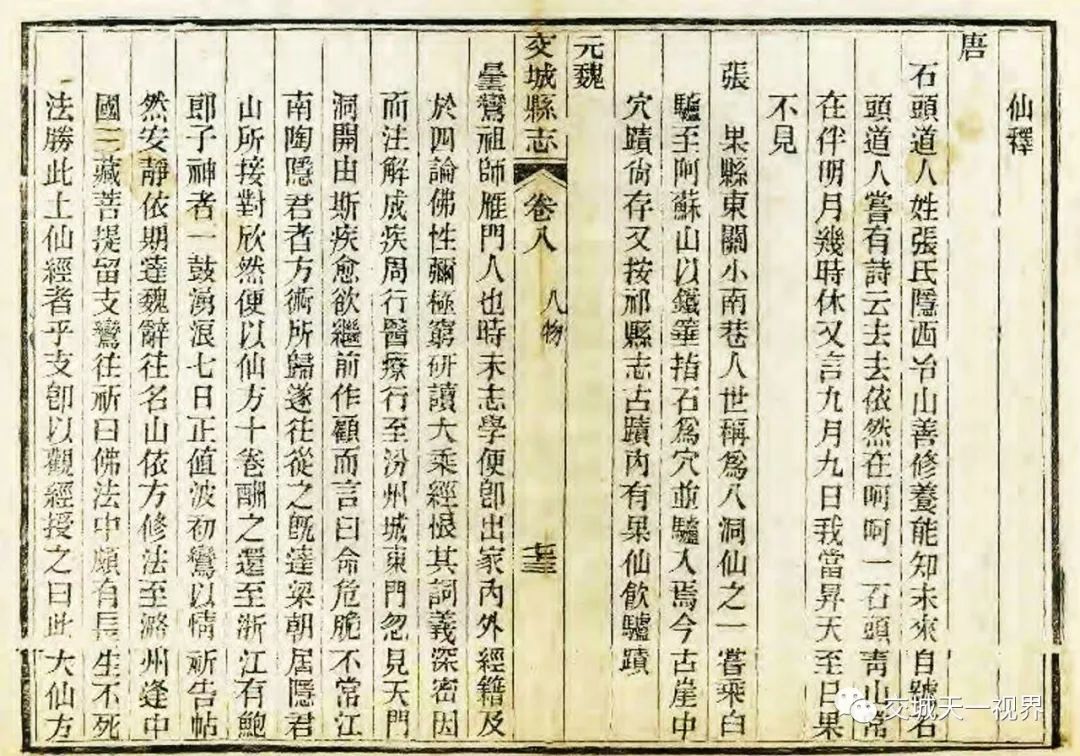 仙釋
唐
石頭道人姓張氏隱西冶山善修養能知未來自號石
頭道人嘗有詩云去去依然在呵呵一石頭靑山常
在伴明月幾時休又言九月九日我當昇天至日果
不見
張　果縣東關小南巷人世稱爲八洞仙之一嘗乘白
驢至阿蘇山以鐵筆指石爲穴並驢入焉今古崖中
穴蹟尙存又按祁縣志古蹟內有果仙飮驢蹟
元魏
交城縣志 卷八 人物 七三
曇鸞祖師雁門人也時未志學便卽出家內外經籍及
於四論佛性彌極窮研讀大乘經恨其詞義深密因
而注解成疾周行醫療行至汾州城東門忽見天門
洞開由斯疾愈欲繼前作顧而言曰命危脆不常江
南陶隱君者方術所歸遂往從之旣達梁朝居隱君
山所接對欣然便以仙方十卷酬之還至浙江有鮑
郎子神者一鼓湧浪七日正值波初鸞以情祈告帖
然安靜依期達魏辭往名山依方修法至潞州逢中
國三藏菩提留支鸞往祈曰佛法中頗有長生不死
法勝此土仙經者乎支卽以觀經授之曰此大仙方
交城天一视界